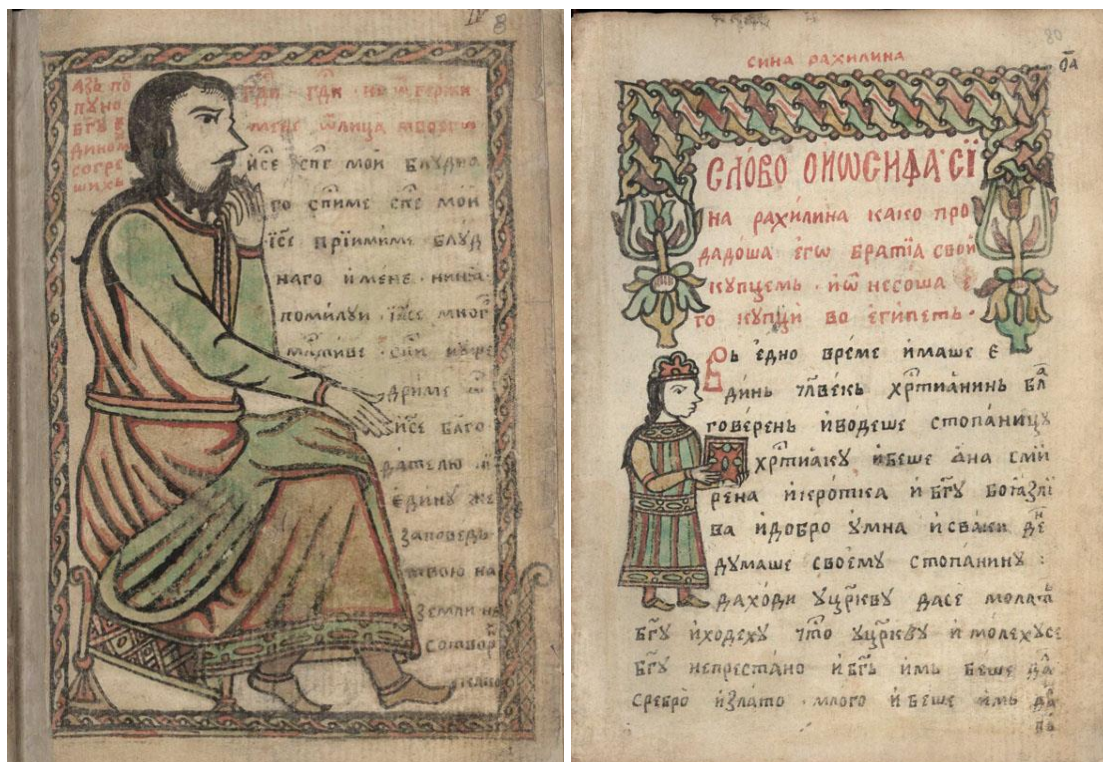 8
азь по
пуно
бг҃у е
дином
согре
шихь
гдⷭ҇и · гдⷭ҇и · не ѿвержи
мене ѿлица твоегѡ
і҆с҃е сп҃е мои блудна
го сп҃име сп҃е мои
і҆с҃е прїимиме блуд
наго именѐ ·
помилуи · і҆с҃е мног
і҆с҃е благо
дателю
єдину же
заповедь
твою на
земли не
сотвор
80
сина рахилина
ѻ҃а
СЛО́ВО ОИѠСИФА · СЇ
на рахи́лина како про
дадоша єгѡ братїа свои
купцемь · и҆ѿнесоша є
го купци во єгипеть ·
Вь є҆дно време и҆маше є
динь чл҃векь хрⷭ҇тианинь бла
говерень и҆водеше стопа́ницу
хрⷭ҇тиаку и҆беше а҆на сми
рена и҆кротка и҆ бг҃у боіазли
ва и҆добро у҆мна и҆сваки деⷩ
думаше своѐму стопанину :
даходи уцр҃кву дасе молать
бг҃у и҆ходеху что уцр҃кву и҆ молехусе
бг҃у непреста́но и҆ бг҃ь имь беше да
сребро̀ и҆злато · млого и҆ беше имь да